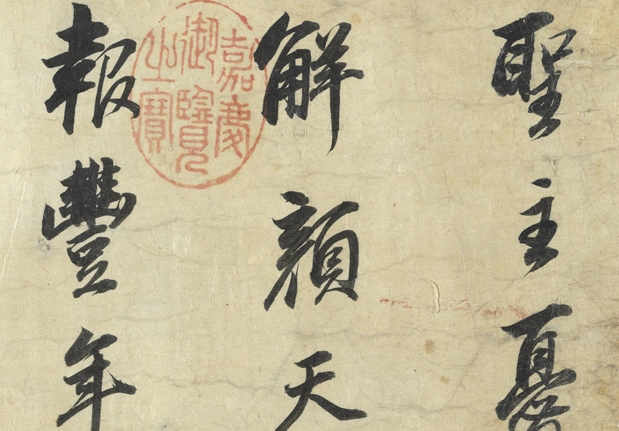 聖主憂
解顏天
報豐年
嘉慶
御覽
之寶